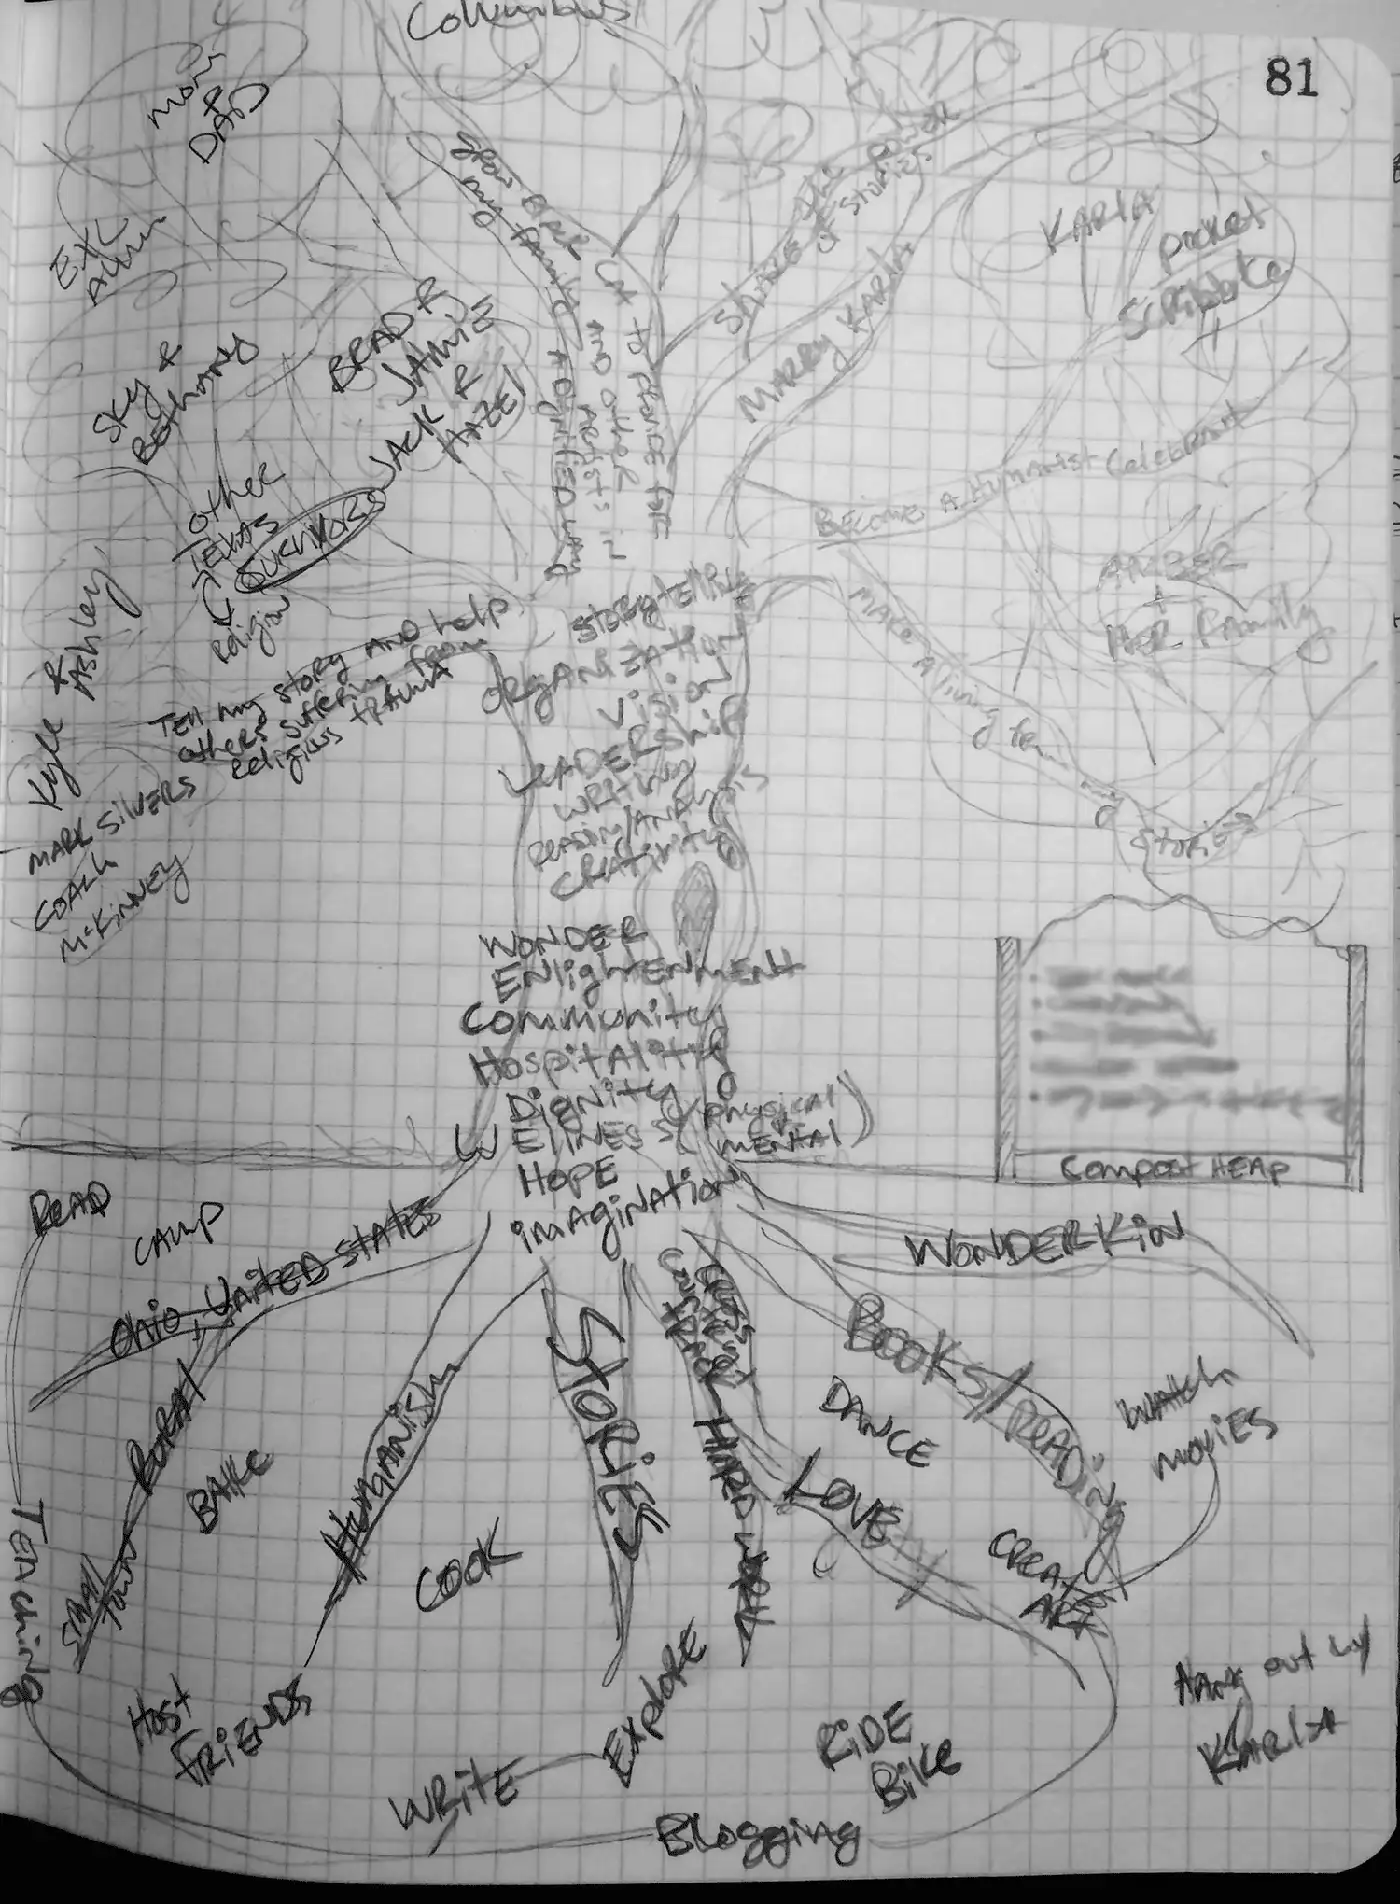 Columbus
81
MOM
&
DAD
EXL
Alum
SKY &
BETHANY
BRAD &
JAMIE
JACK &
HAZEL
Other
TEXAS
&
Survivors
Religion
Kyle &
Ashley
MARK SILVERS
COACH
McKINNEY
Tell my story AND help
others suffering from
Religious TRAUMA
grow BLACK CAT to PROVIDE FOR
my family AND other
ARTISTS in
A DIGNIFIED WAY
SHARE the POWER
OF STORIES
MARRY KARLA
KARLA
POCKET
SCRIBBLE
BECOME A Humanist Celebrant
AMBER
+
HER Family
MAKE A living telling
Stories
STORYTELLING
ORGANIZATION
VISION
LEADERSHIP
WRITING
READING/ANALYSIS
CREATIVITY
WONDER
ENlightENMENt
Community
HospitAlity
Dignity
WEllNESS (physical
mental)
HOPE
imAgiNAtioN
Compost HEAP
READ
CAMP
Ohio, UNitED StAtES
RURAl
SMAll
TOWN
BAKE
HUMANISM
COOK
STORiES
HARD WORK
WONDERKiN
BOOKS/READiNg
DANCE
LOVE
WAtch
MOViES
CREATE
ART
TEAChing
Host
FRiENDS
WRitE
ExploRE
RiDE
BiKE
HANg out w/
KARlA
Blogging